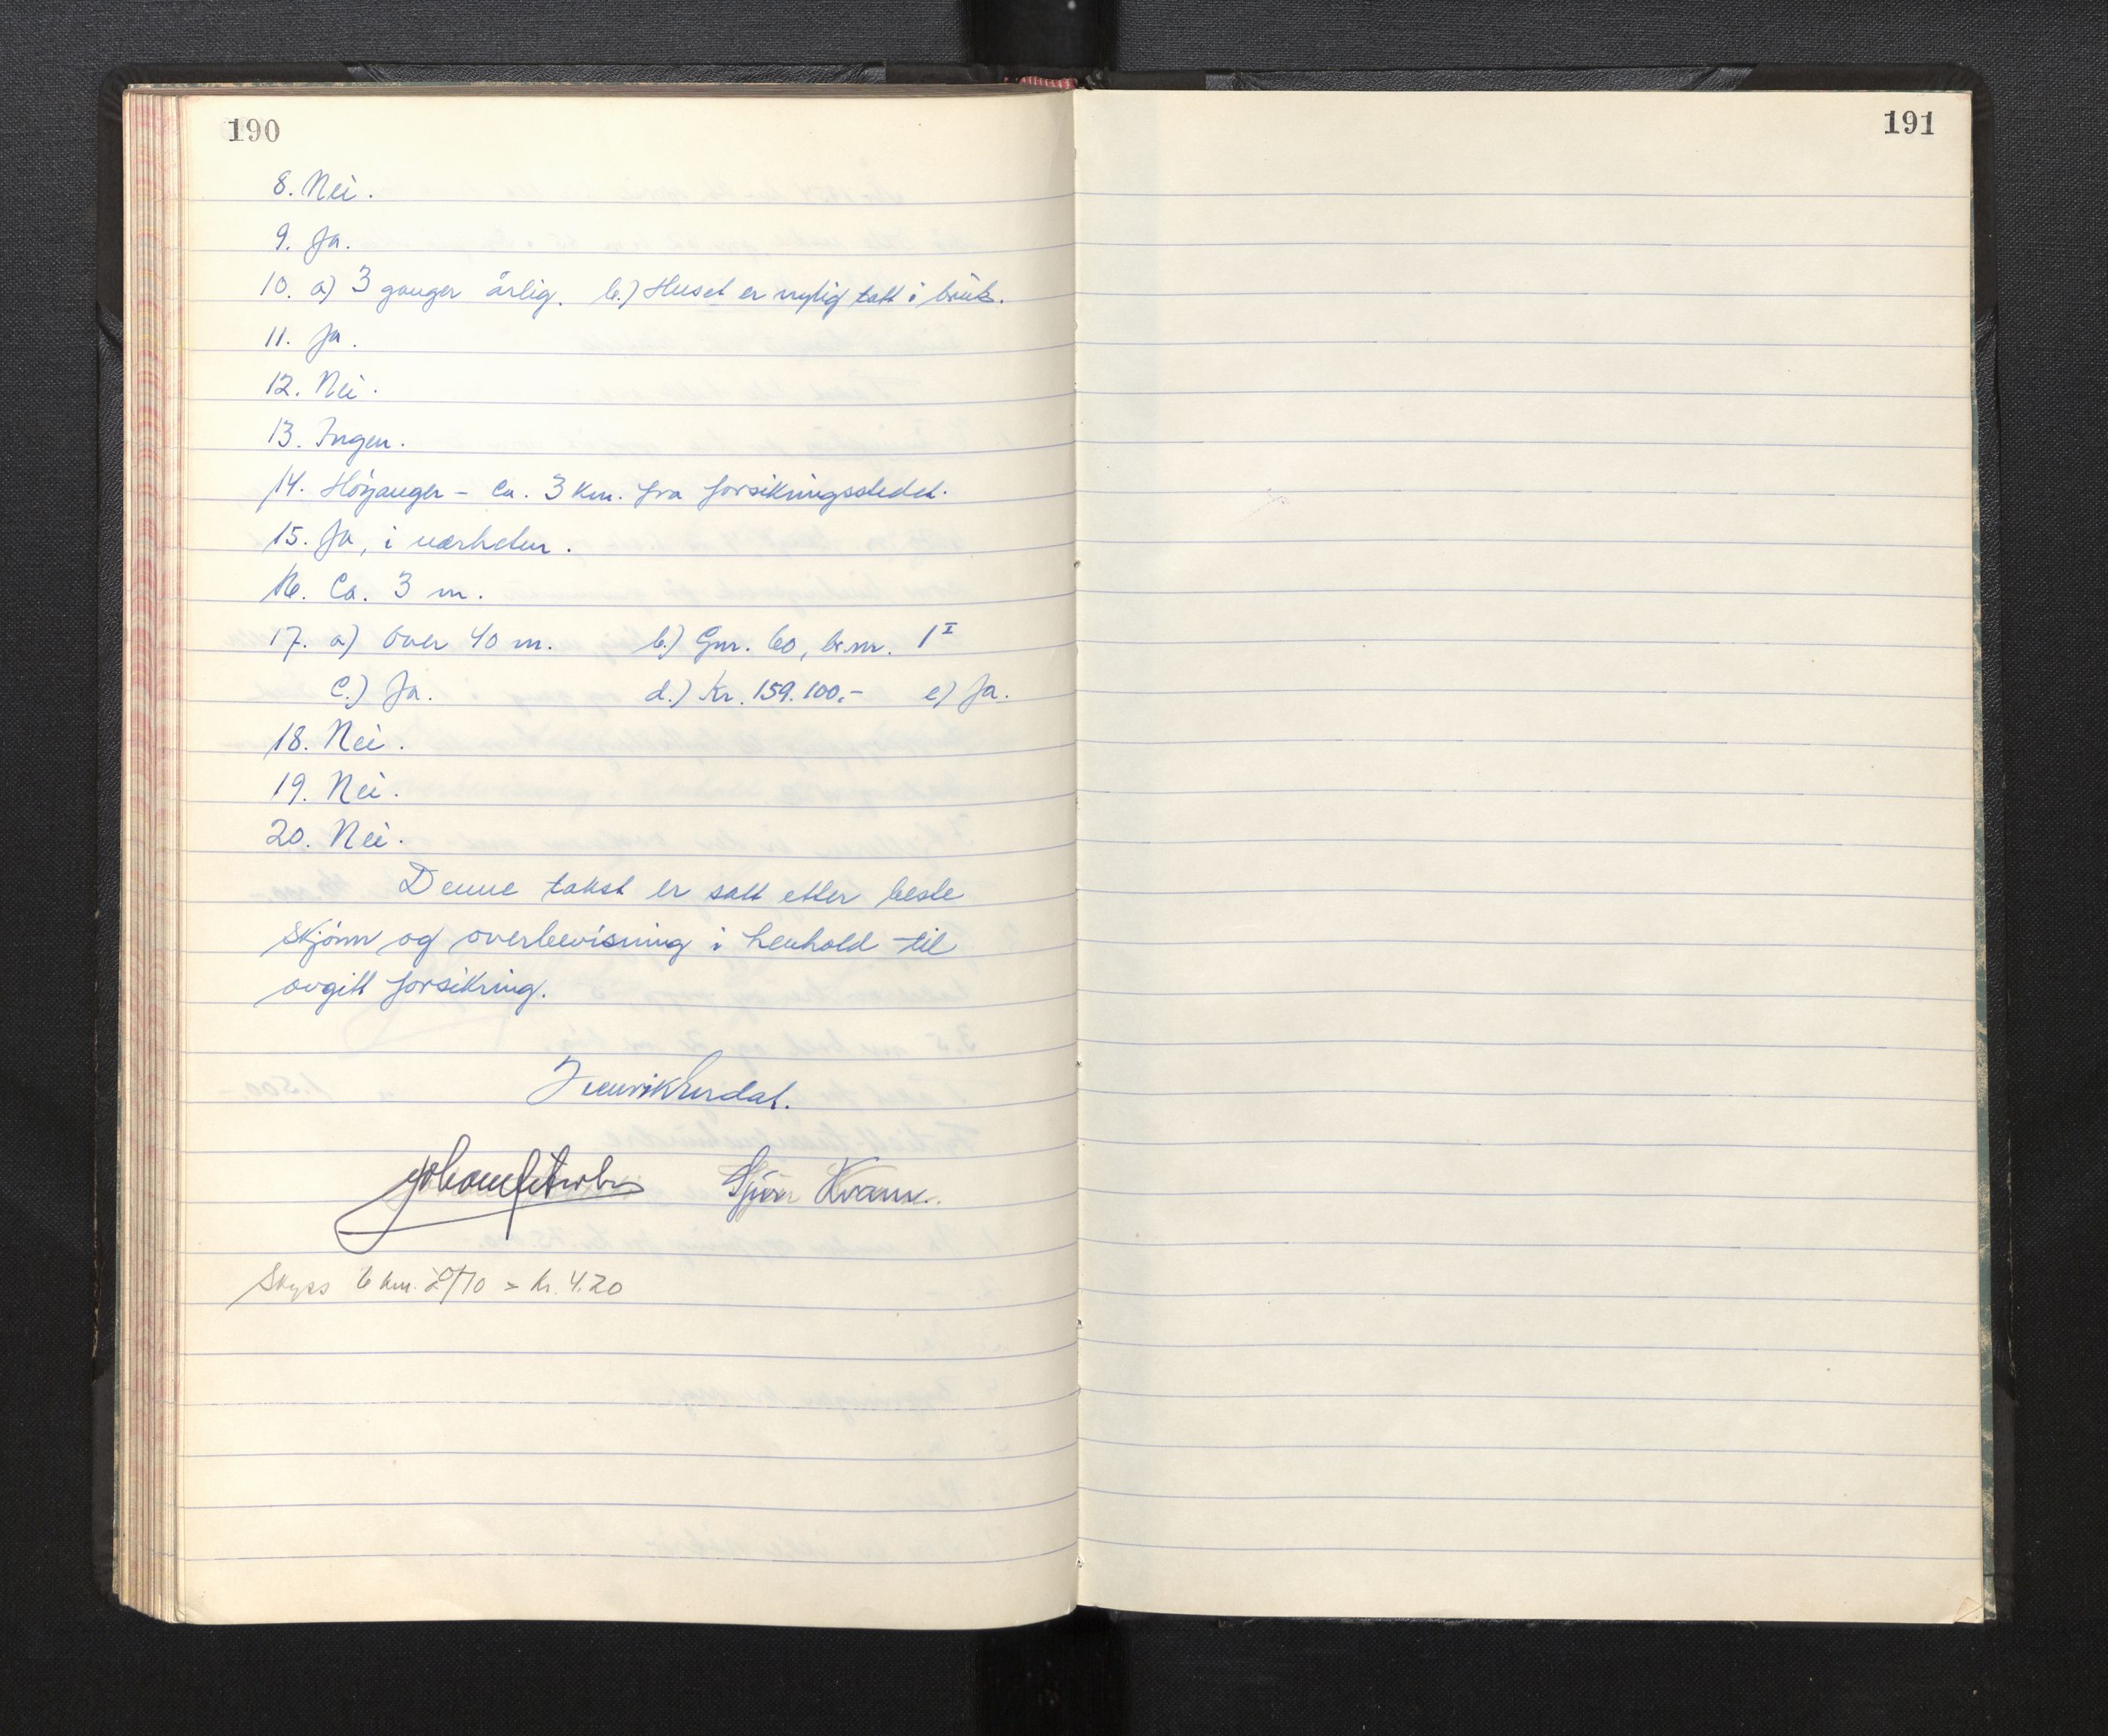 190
8. Nei.
9. Ja.
10. a) 3 ganger årlig. b.) Huset er nylig tatt i bruk.
11. Ja.
12. Nei.
13. Ingen.
14. Höyanger – Ca. 3 km. fra forsikringsstedet.
15. Ja, i nærheten.
16. Ca. 3 m.
17. a) Over 40 m. b.) Gnr. 60, br.nr. 1 I
c.) Ja. d.) Kr. 159.100.- e) Ja.
18. Nei.
19. Nei.
20. Nei.
Denne takst er satt etter beste
skjönn og overbevisning i henhold til
avgitt forsikring.
Henrik Erdal.
Kvamme.
Skyss 6 km. á -/70 = kr. 4.20
191